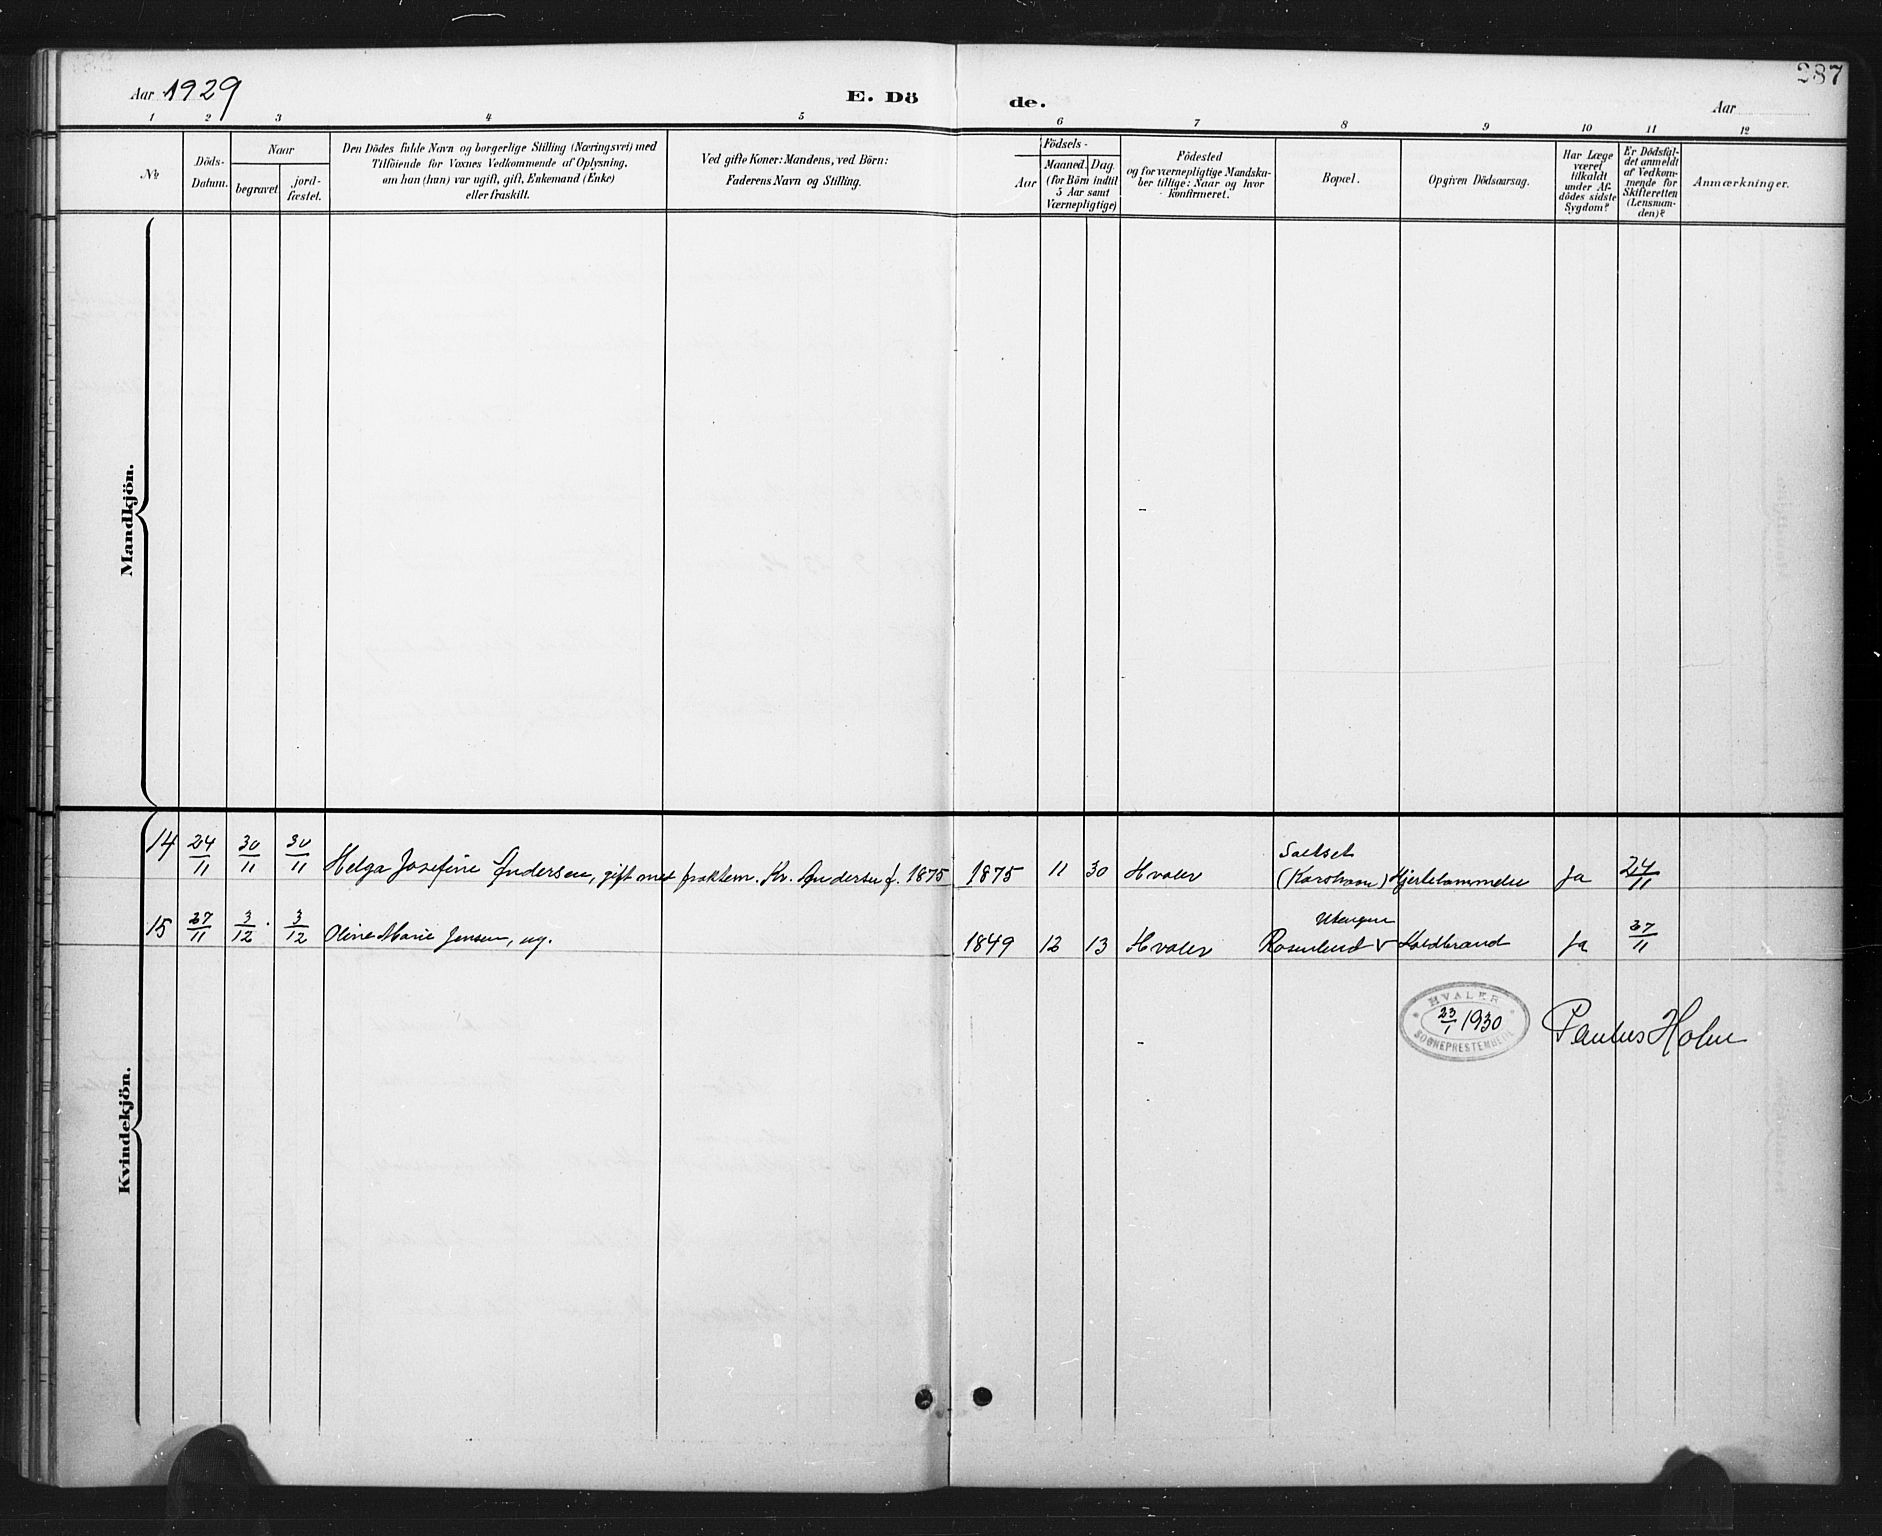 287
Aar 1929
E. Dö de.
Aar
1 2 3 4 5 6 7 8 9 10 11 12
№
Döds-
Datum.
Naar
begravet
jord-
fæstet.
Den Dödes fulde Navn og borgerlige Stilling (Næringsvei) med
Tilföiende for Voxnes Vedkommende af Oplysning,
om han (hun) var ugift, gift, Enkemand (Enke)
eller fraskilt.
Ved gifte Koner: Mandens, ved Börn:
Faderens Navn og Stilling.
Födsels-
Aar
Maaned.
Dag.
(for Börn indtil
5 Aar samt
Værnepligtige)
Födested
og for værnepligtige Mandska-
ber tillige: Naar og hvor
konfirmeret.
Bopæl.
Opgiven Dödsaarsag.
Har Læge
været
tilkaldt
under Af-
dödes sidste
Sygdom?
Er Dödsfal-
det anmeldt
af Vedkom-
mende for
Skifteretten
(Lensman-
den)?
Anmærkninger.
Mandkjön.
Kvindekjön.
14 24/11 30/11 30/11 Helga Josefine Andersen, gift med Kr. Andersen f. 1875 1875 11 30 Hvaler (Karshavn) Ja 24/11
15 27/11 3/12 3/12 Oline Marie Jensen, ug. 1849 12 13 Hvaler Utengen Rosenlund Koldbrand Ja 27/11
HVALER
23/1 1930
SOGNEPRESTEMBEDE
Paulus Holm